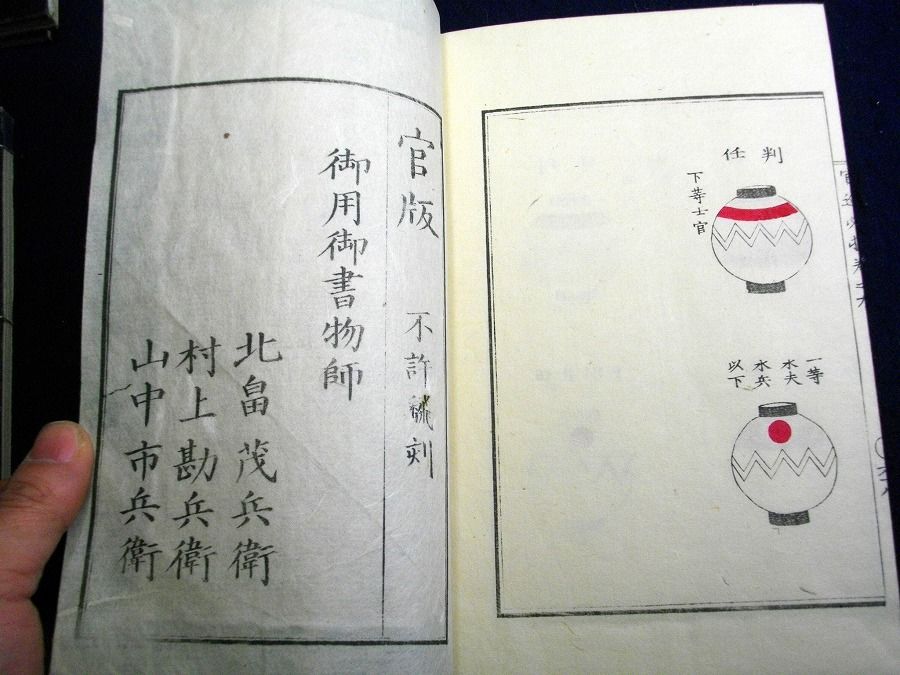 判任
下等士官
一等
水夫
水兵
以下
官版
不許飜刻
御用御書物師
北畠茂兵衛
村上勘兵衛
山中市兵衛